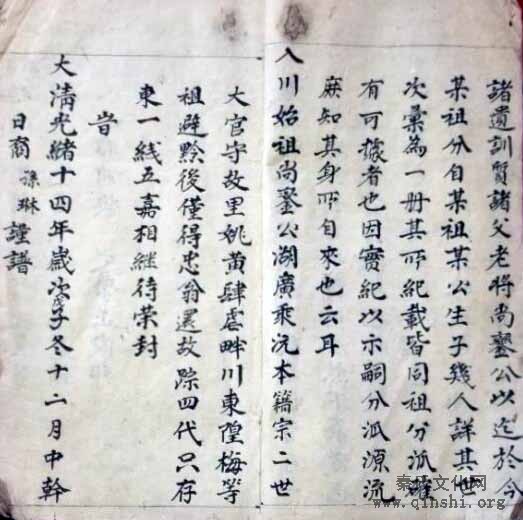 諸遺訓質諸父老將尚鑿公以迄於今
某祖分自某祖某公生子幾人詳其世
次彙為一册其所紀載皆同祖分派確
有可據者也因實紀以示嗣分派源流
庶知其身所自來也云耳
入川始祖尚鑿公湖廣乘流本籍宗二世
大官守故里姚黄肆虐畔川東隍梅等
祖避黔後僅得忠翁還故踪四代只存
東一线五嘉相継待荣封
旹
大清光緒十四年歲次戊子冬十二月中幹
日裔孫琳謹譜
秦氏文化网
www.qinshi.org